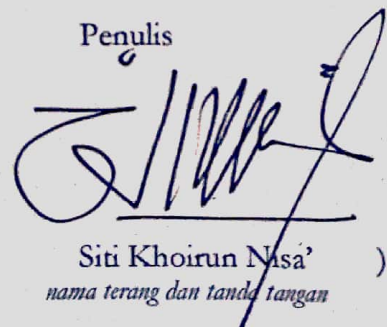 Penulis
Siti Khoirun Nisa' )
nama terang dan tanda tangan